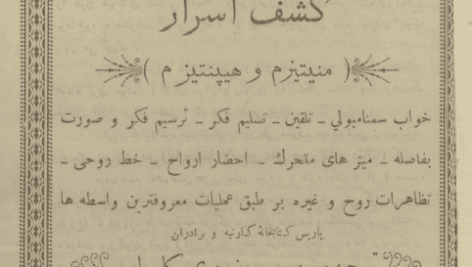 کشف اسرار
( منیتیزم و هیپنتیزم )
خواب سمنامبولی ـ تلقین ـ تسلیم فکر ـ ترسیم فکر و صورت
بفاصله ـ میز های متحرك ـ احضار ارواح ـ خط روحی ـ
تظاهرات روح و غیره بر طبق عملیات معروفترین واسطه ها
پاریس کتابخانهٔ کارنیه و برادران